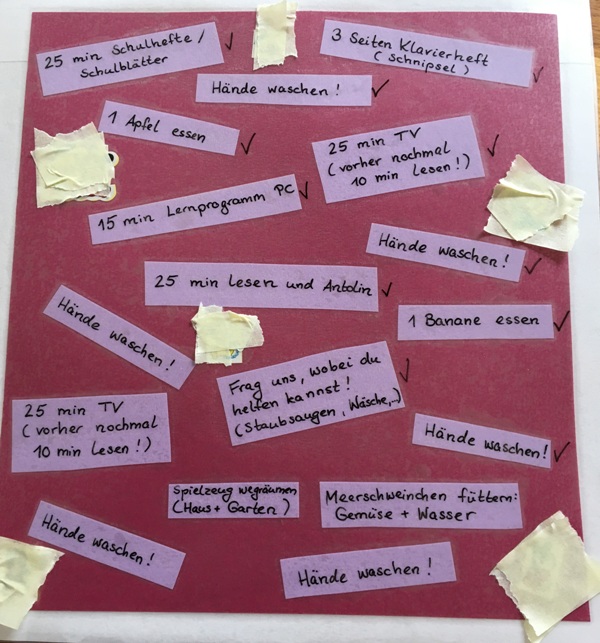 25 min Schulhefte /
Schulblätter
3 Seiten Klavierheft
(Schnipsel)
Hände waschen!
1 Apfel essen
25 min TV
(vorher nochmal
10 min lesen!)
15 min Lernprogramm PC
Hände waschen!
25 min lesen und Antolin
Hände waschen!
1 Banane essen
Frag uns, wobei du
helfen kannst!
(Staubsaugen, Wäsche,...)
25 min TV
(vorher nochmal
10 min lesen!)
Hände waschen!
Spielzeug wegräumen
(Haus + Garten)
Meerschweinchen füttern:
Gemüse + Wasser
Hände waschen!
Hände waschen!